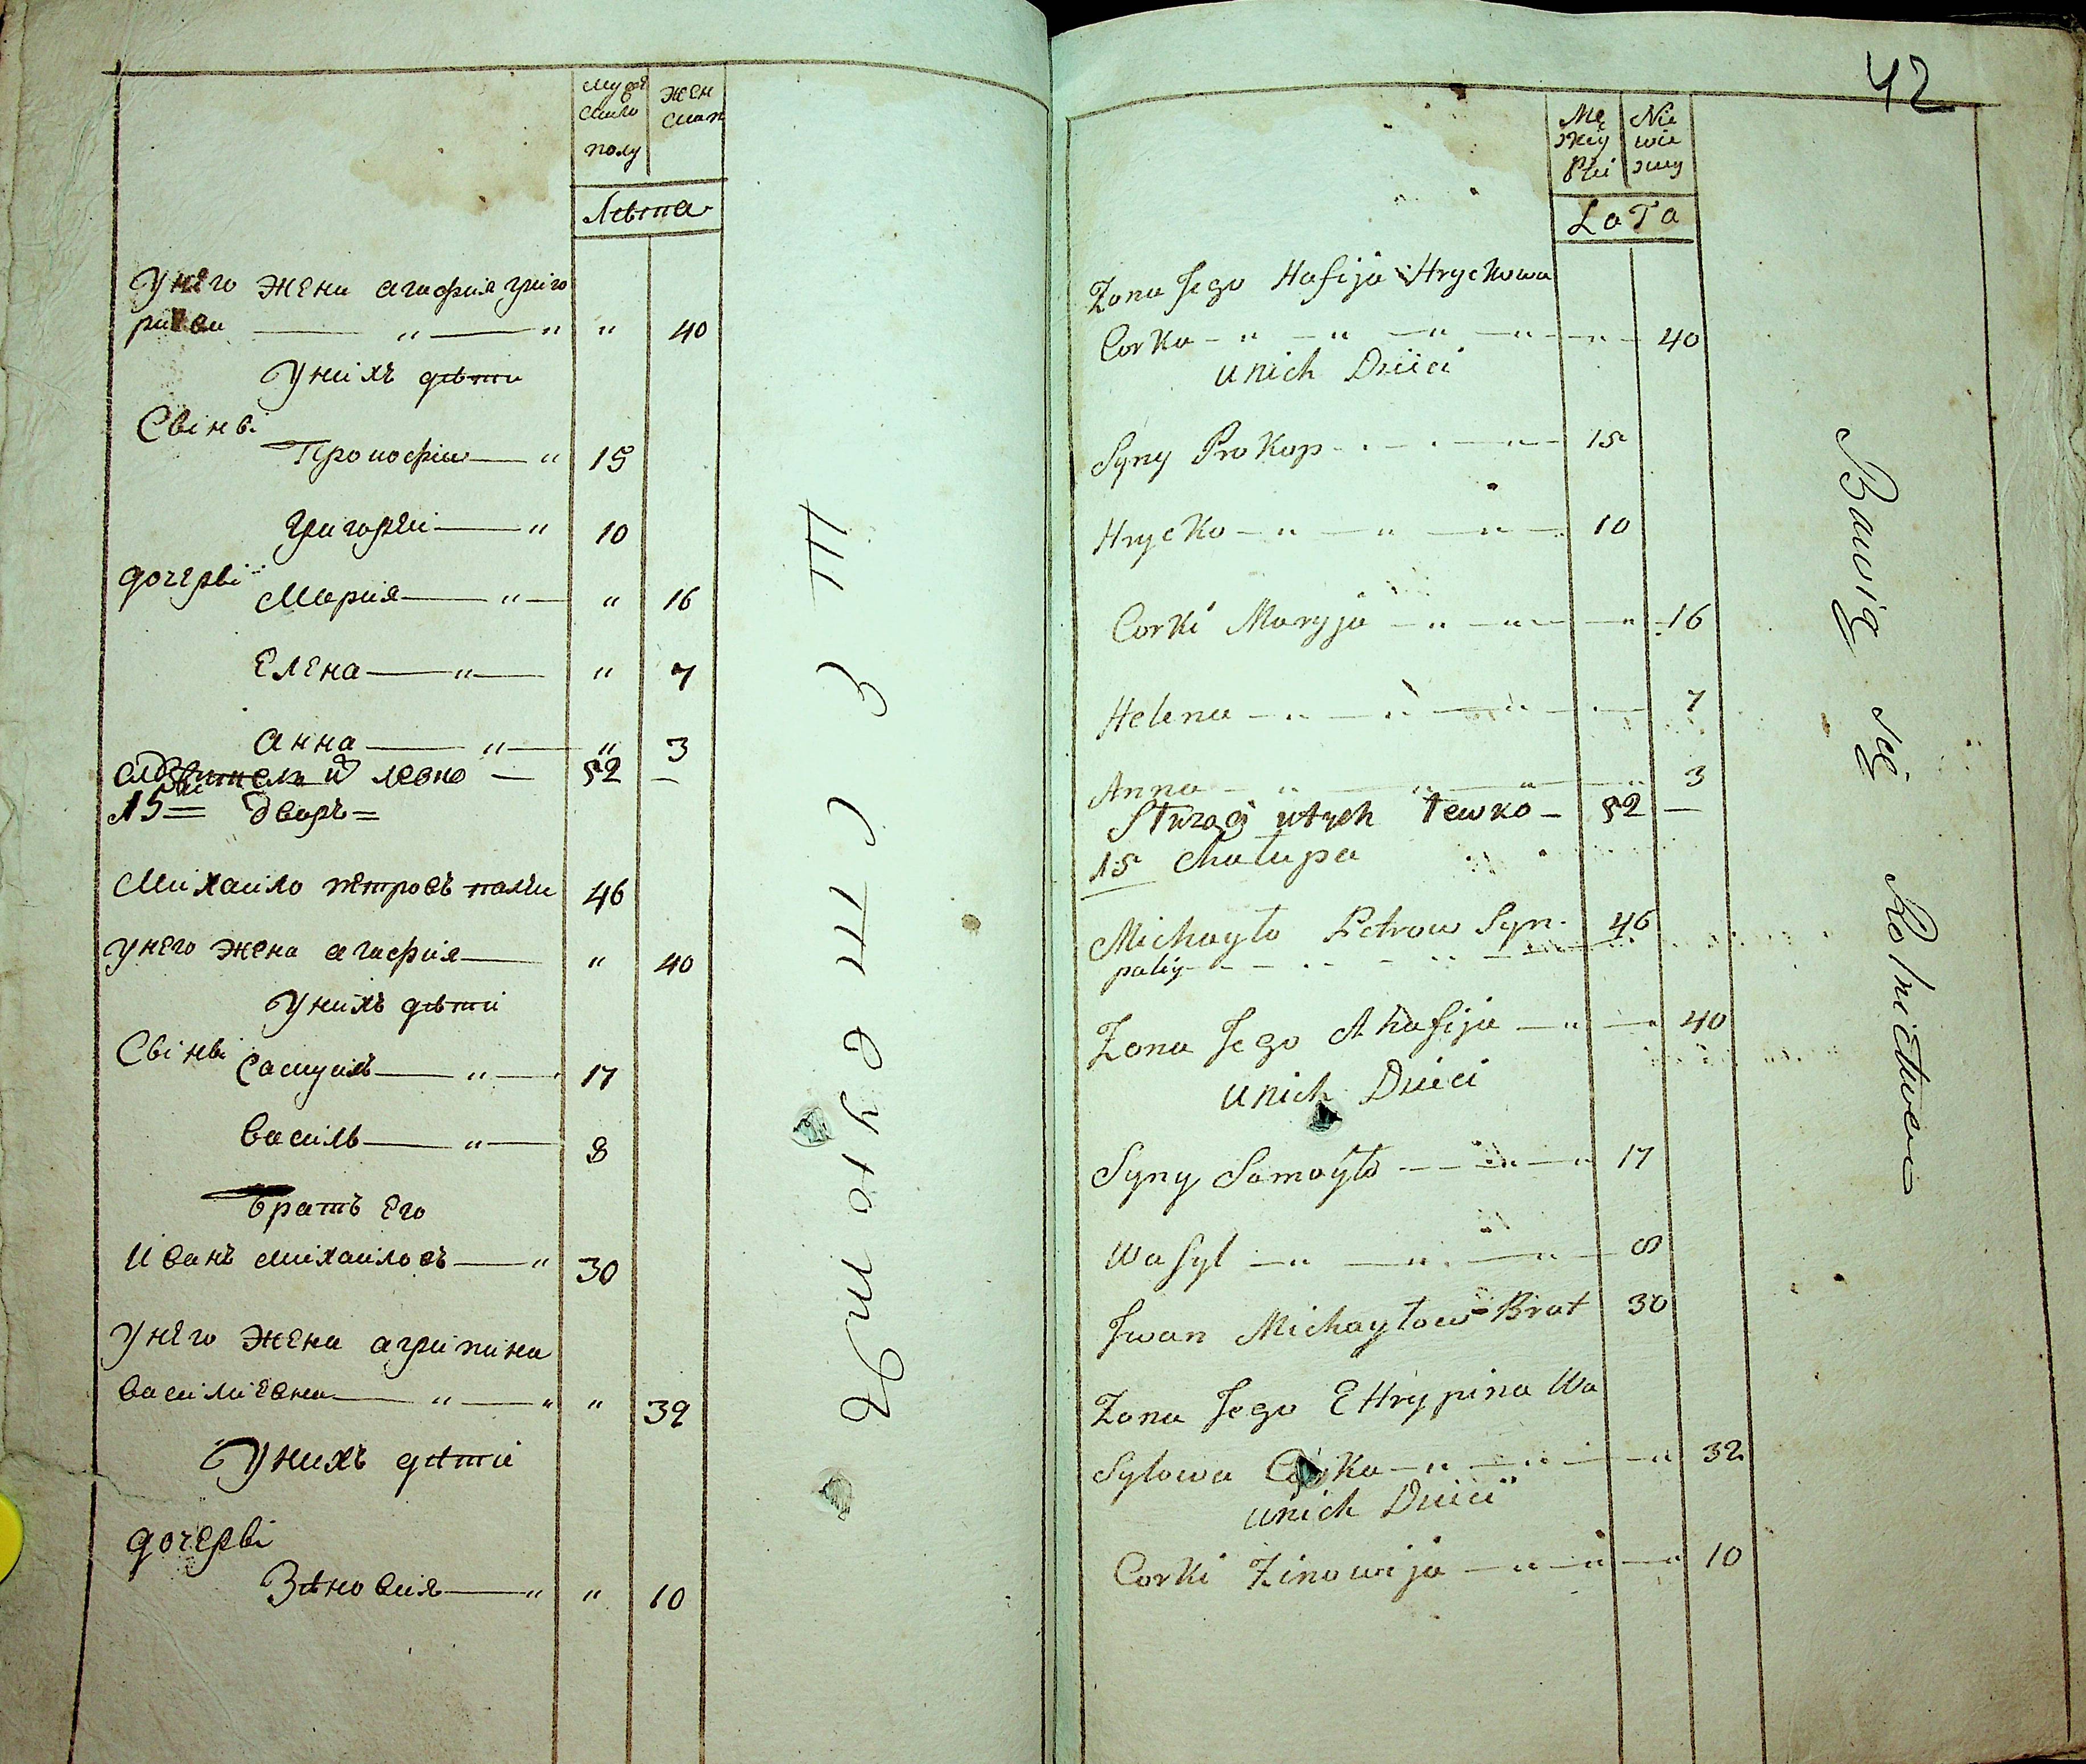 мужеска
полу
жен
скаго
Лѣта
У него жена агафия григо
риева " " " 40
У нихъ дѣти
Сыны
Прокофии " 15
Григорѣи " 10
дочеры
Мария " " 16
Елена " " 7
анна " " 3
левко 52
15 = дворъ =
Михаило петровъ палiи 46
У него жена агафия " 40
У нихъ дѣти
Сыны Самуилъ " 17
василь " 8
братъ Его
Иванъ михаиловъ " 30
У него жена агрипина
василиевна " " " 39
У нихъ дѣти
дочеры
Зѣновия " " 10
42
Mę
skiy
Płci
Nie
wie
sciey
LaTa
Zona Jego Hafija Hryckowa
Corka 40
u nich Dzieci
Syny Prokop 15
Hrycko 10
Corki Maryja 16
Helena 7
Anna 3
utych Lewko 52
15 Chałupa
Michayło Petrow Syn 46
paliy
Zona Jego Ahafija 40
u nich Dzieci
Syny Samoyło 17
Wasyl 8
Jwan Michayłow Brat 30
Zona Jego EHrypina Wa
sylowa Corka 32
u nich Dzieci
Corki Zinowija 10
Bawią się Rolnictwem